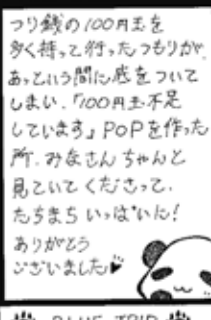 つり銭の100円玉を
多く持って行ったつもりが、
あっという間に底をついて
しまい、「100円玉不足
しています」POPを作った
所、みなさんちゃんと
見ていてくださって、
たちまちいっぱいに!
ありがとう
ございました♥
BLUE TRIP